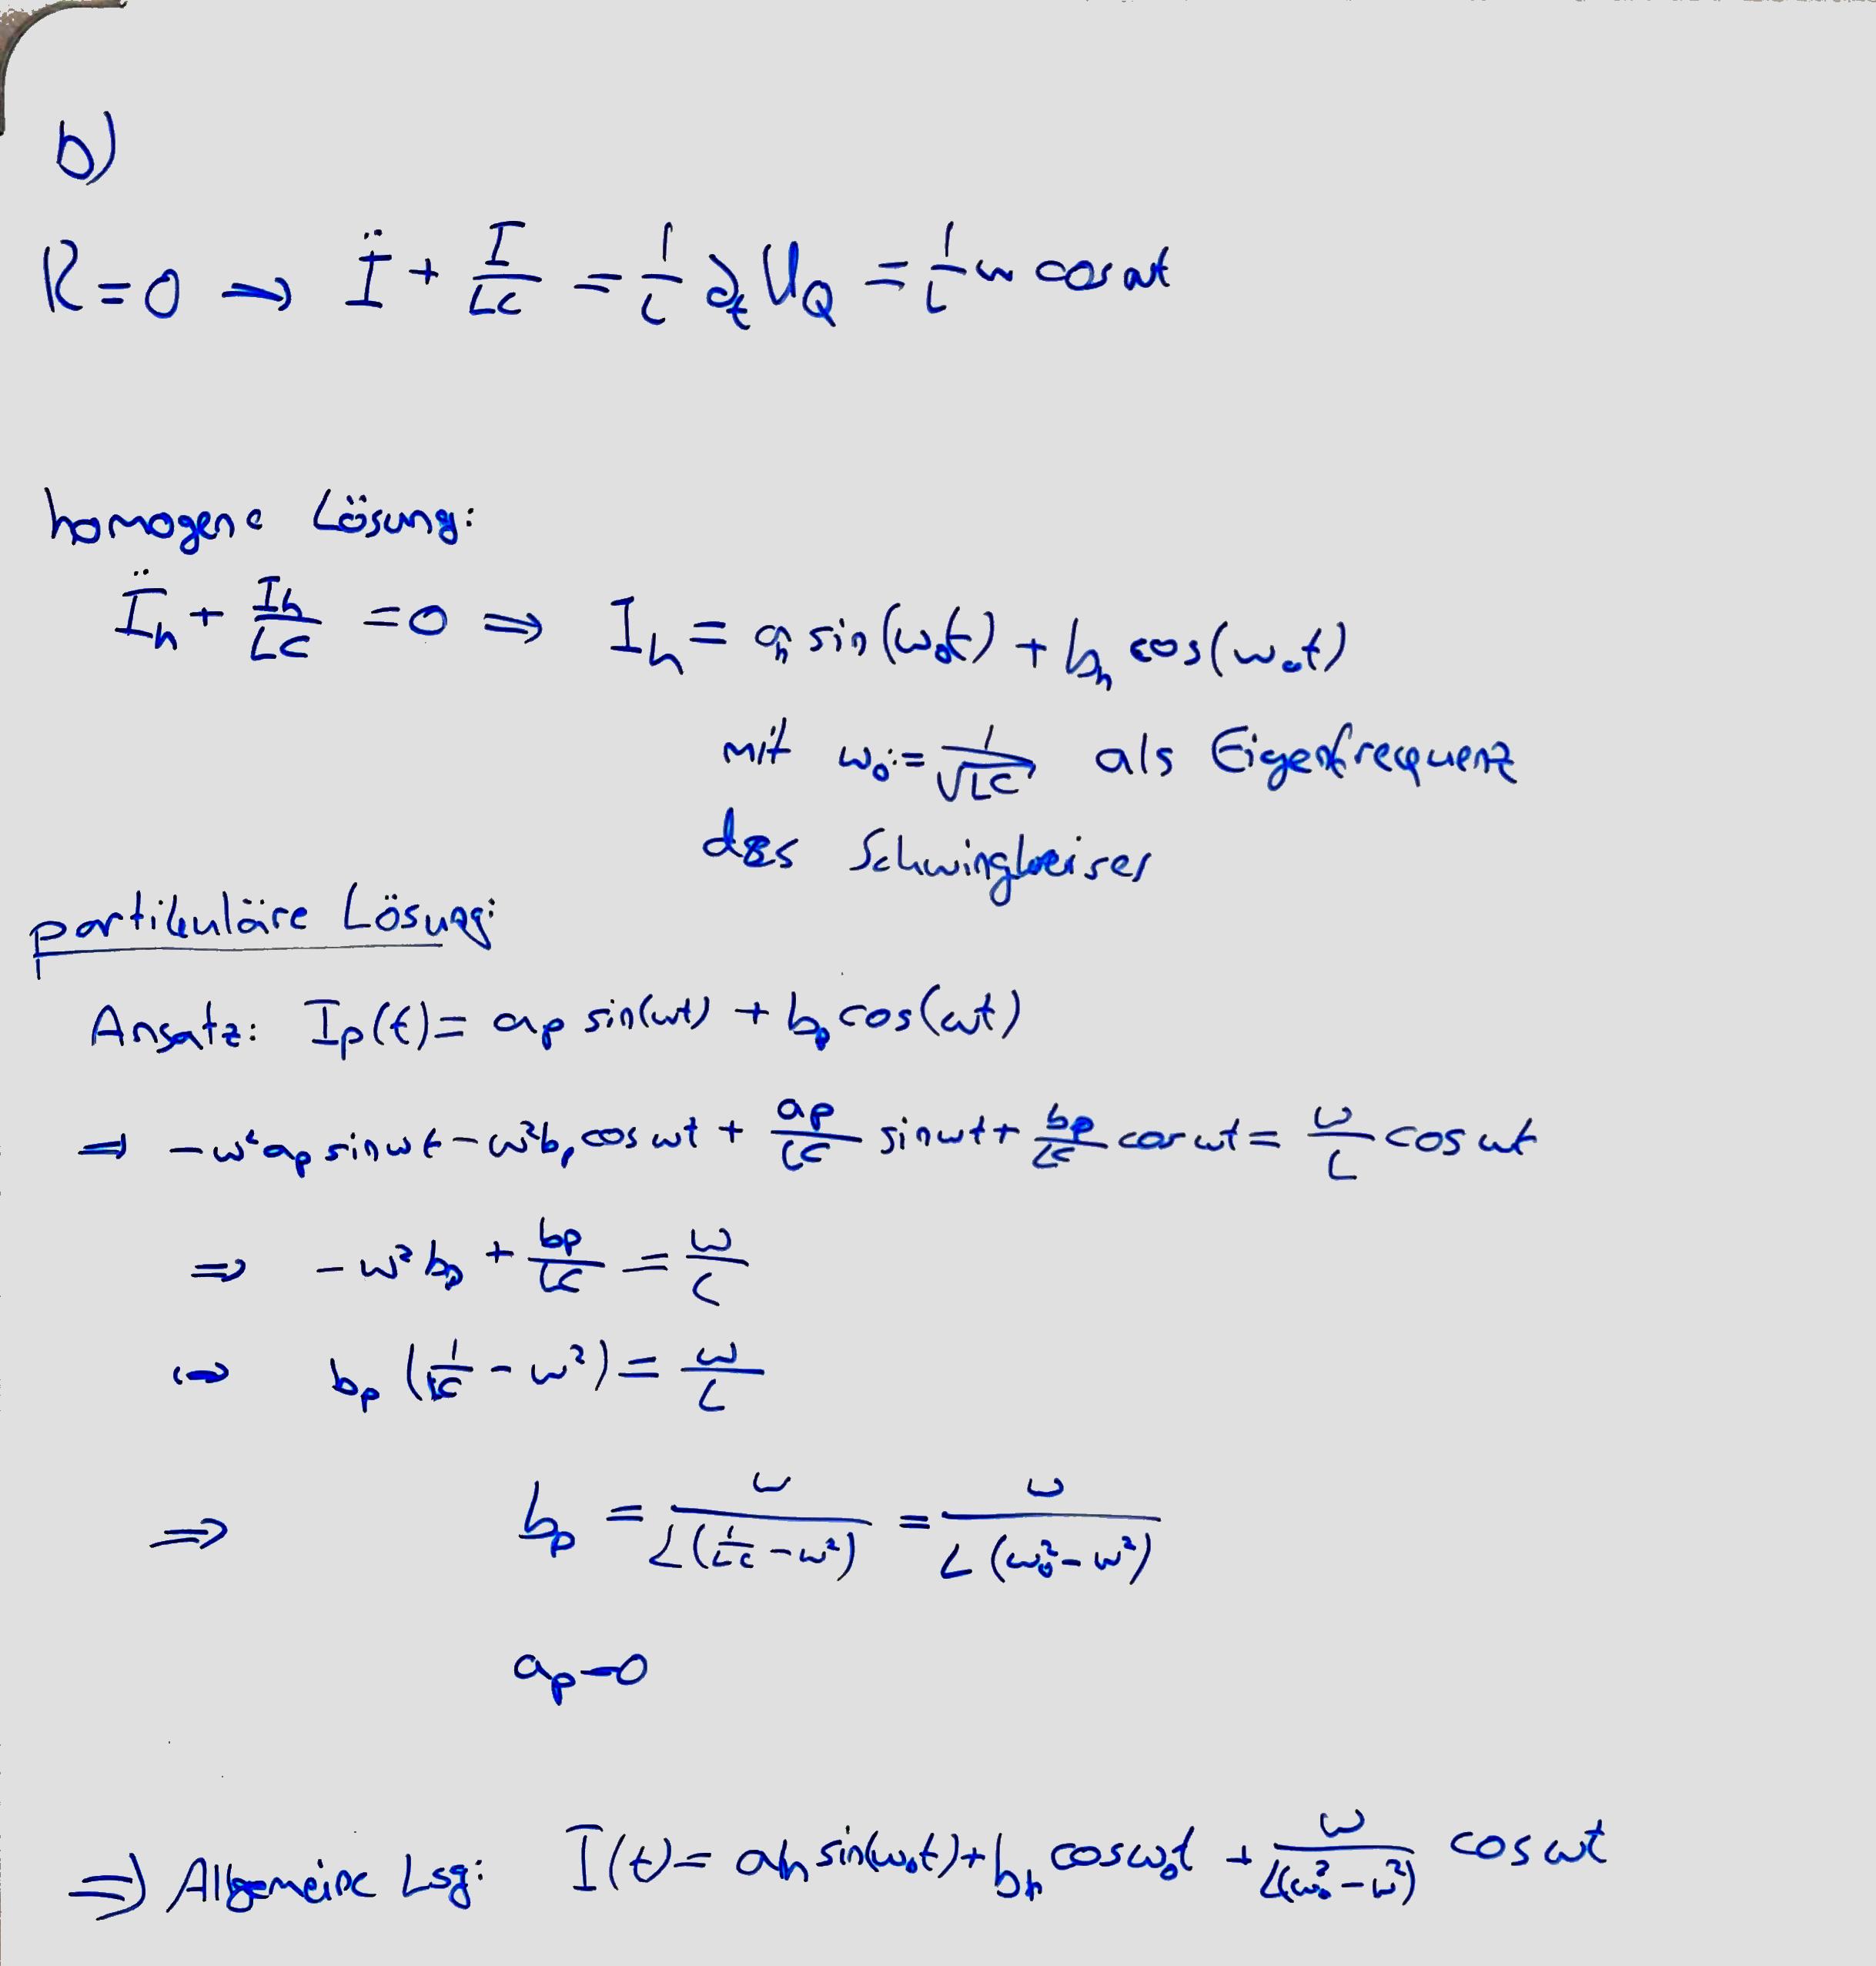 b)
R=0 → Ï + I/LC = 1/L ∂ₜ U_Q = 1/L ω cos ωt
homogene Lösung:
Ï_h + I_h/LC = 0 ⇒ I_h = a_h sin(ω₀t) + b_h cos(ω₀t)
mit ω₀ := 1/√LC als Eigenfrequenz
des Schwingkreises
partikuläre Lösung:
Ansatz: I_p(t) = a_p sin(ωt) + b_p cos(ωt)
⇒ -ω² a_p sin ωt - ω² b_p cos ωt + a_p/LC sin ωt + b_p/LC cos ωt = ω/L cos ωt
⇒ -ω² b_p + b_p/LC = ω/L
⇔ b_p (1/LC - ω²) = ω/L
⇒ b_p = ω/L(1/LC - ω²) = ω/L(ω₀² - ω²)
a_p = 0
⇒ Allgemeine Lsg: I(t) = a_h sin(ω₀t) + b_h cos ω₀t + ω/L(ω₀² - ω²) cos ωt